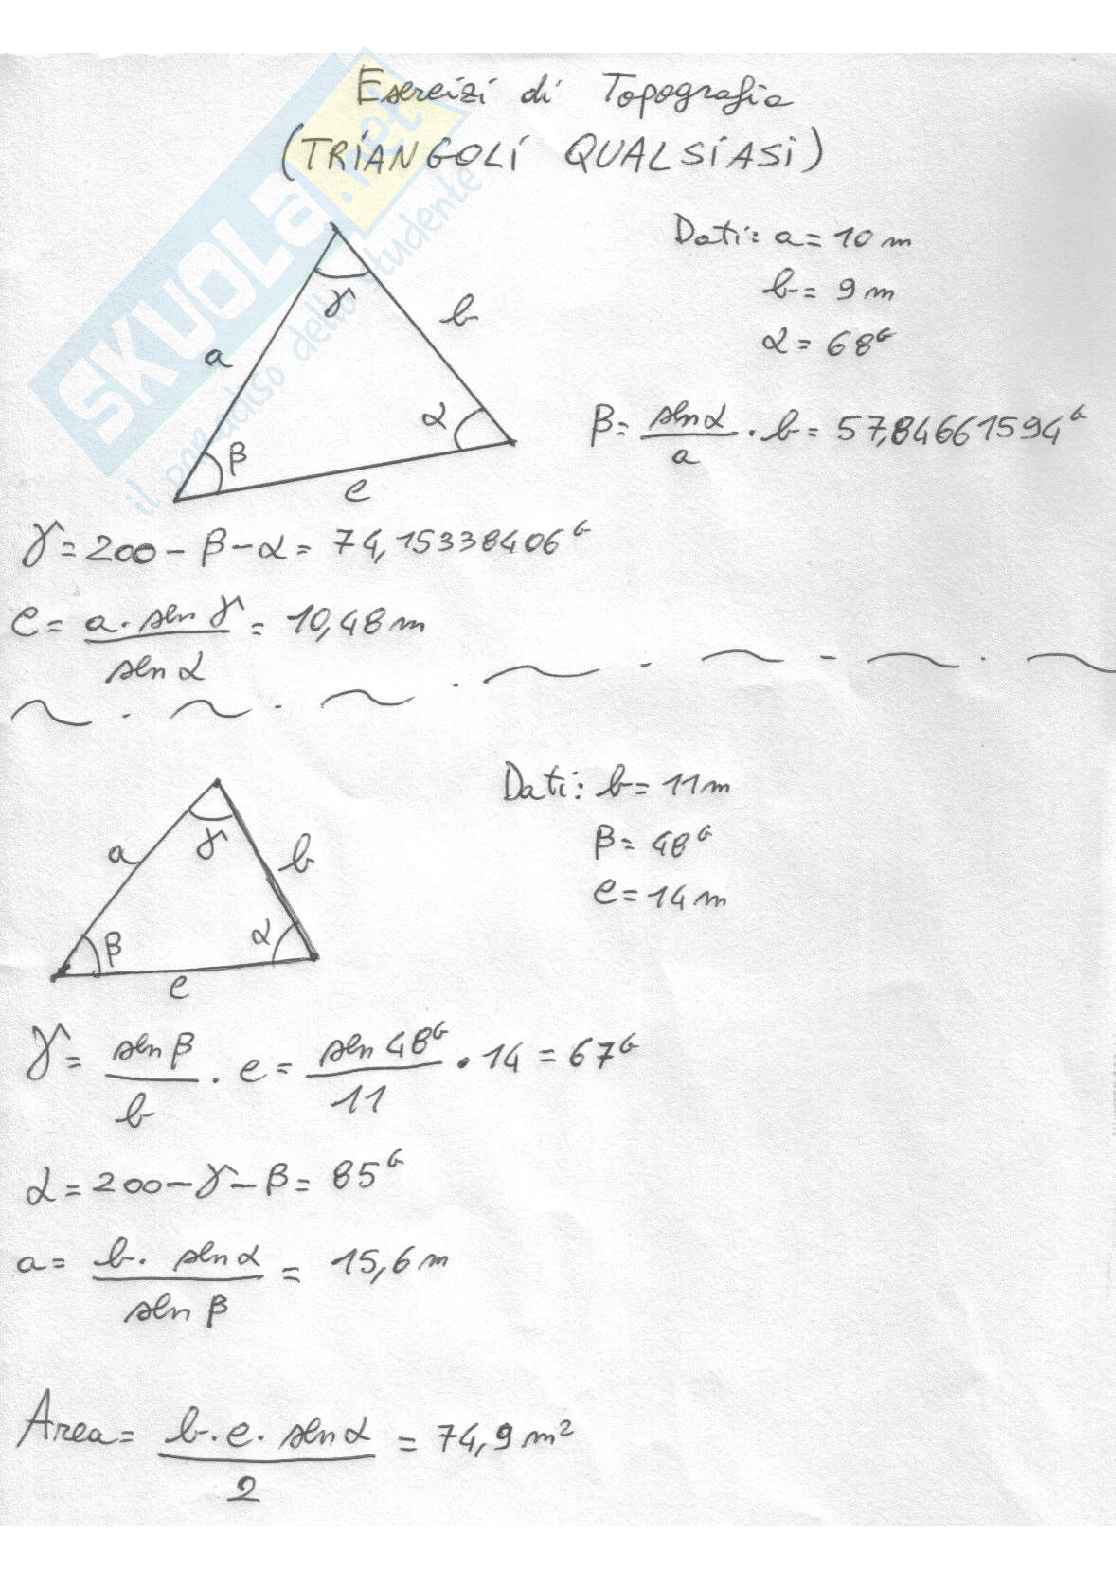 Esercizi di Topografia
(TRIANGOLI QUALSIASI)
SKUOLA.net
il paradiso dello studente
Dati: a = 10 m
b = 9 m
α = 68ᴳ
a
γ
b
β
α
c
β = senα / a · b = 57,84661594ᴳ
γ = 200 - β - α = 74,15338406ᴳ
c = a · sen γ / sen α = 10,48 m
Dati: b = 11 m
β = 48ᴳ
c = 14 m
a
γ
b
β
α
c
γ = sen β / b · c = sen 48ᴳ / 11 · 14 = 67ᴳ
α = 200 - γ - β = 85ᴳ
a = b · sen α / sen β = 15,6 m
Area = b · c · sen α / 2 = 74,9 m²